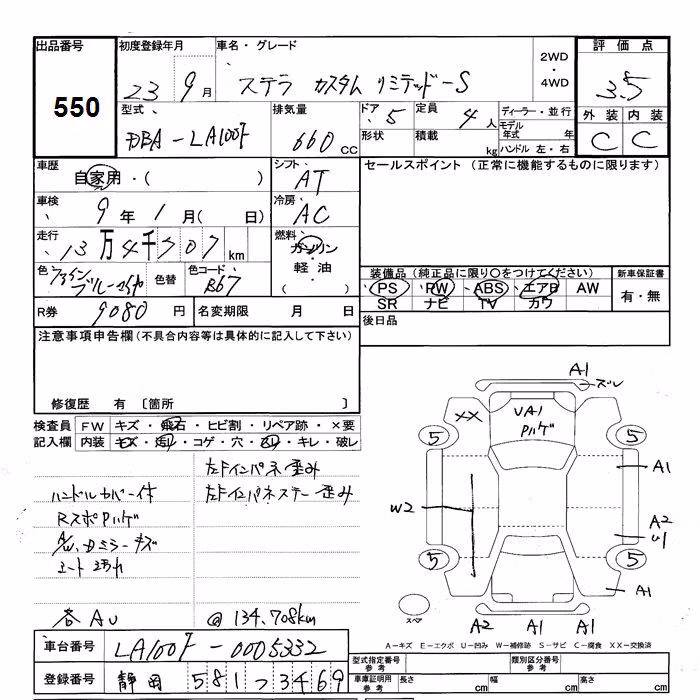 出品番号
550
初度登録年月
23 9月
車名・グレード
ステラ カスタム リミテッド-S
2WD
・
4WD
評価点
3.5
外装 内装
C C
型式
DBA-LA100F
排気量
660 CC
ドア 5
定員 4人
形状
積載 kg
ディーラー・並行
モデル年式 年
ハンドル 左・右
車歴
自家用・( )
シフト
AT
セールスポイント (正常に機能するものに限ります)
車検
9年1月( 日)
冷房
AC
走行
13万4千707km
燃料
ガソリン
・
軽油
( )
色
色替
色コード
B67
装備品 (純正品に限り○をつけてください)
PS PW ABS エアB AW
SR ナビ TV カワ
新車保証書
有・無
R券 9080円
名変期限 月 日
後日品
注意事項申告欄 (不具合内容等は具体的に記入して下さい)
修復歴 有 〔箇所 〕
検査員
記入欄
FW キズ・飛石・ヒビ割・リペア跡・×要
内装 キズ・汚れ・コゲ・穴・スレ・キレ・破レ
左Fインパネ歪み
左Fインパネステー歪み
ハンドルカバー付
RスポPハゲ
A/W、Dミラーキズ
シート汚れ
各AU
@134,708km
A1
ズレ
XX
UA1
Pハゲ
5 5
A1
W2
A2
U1
5 5
A1
スペア
A2 A1 A1
A-キズ E-エクボ U-凹み W-補修跡 S-サビ C-腐食 XX-交換済
車台番号
LA100F-0005332
登録番号
静岡 581 つ 3469
型式指定番号
参考
類別区分番号
参考
車庫証明用
参考
長さ cm
幅 cm
高さ cm